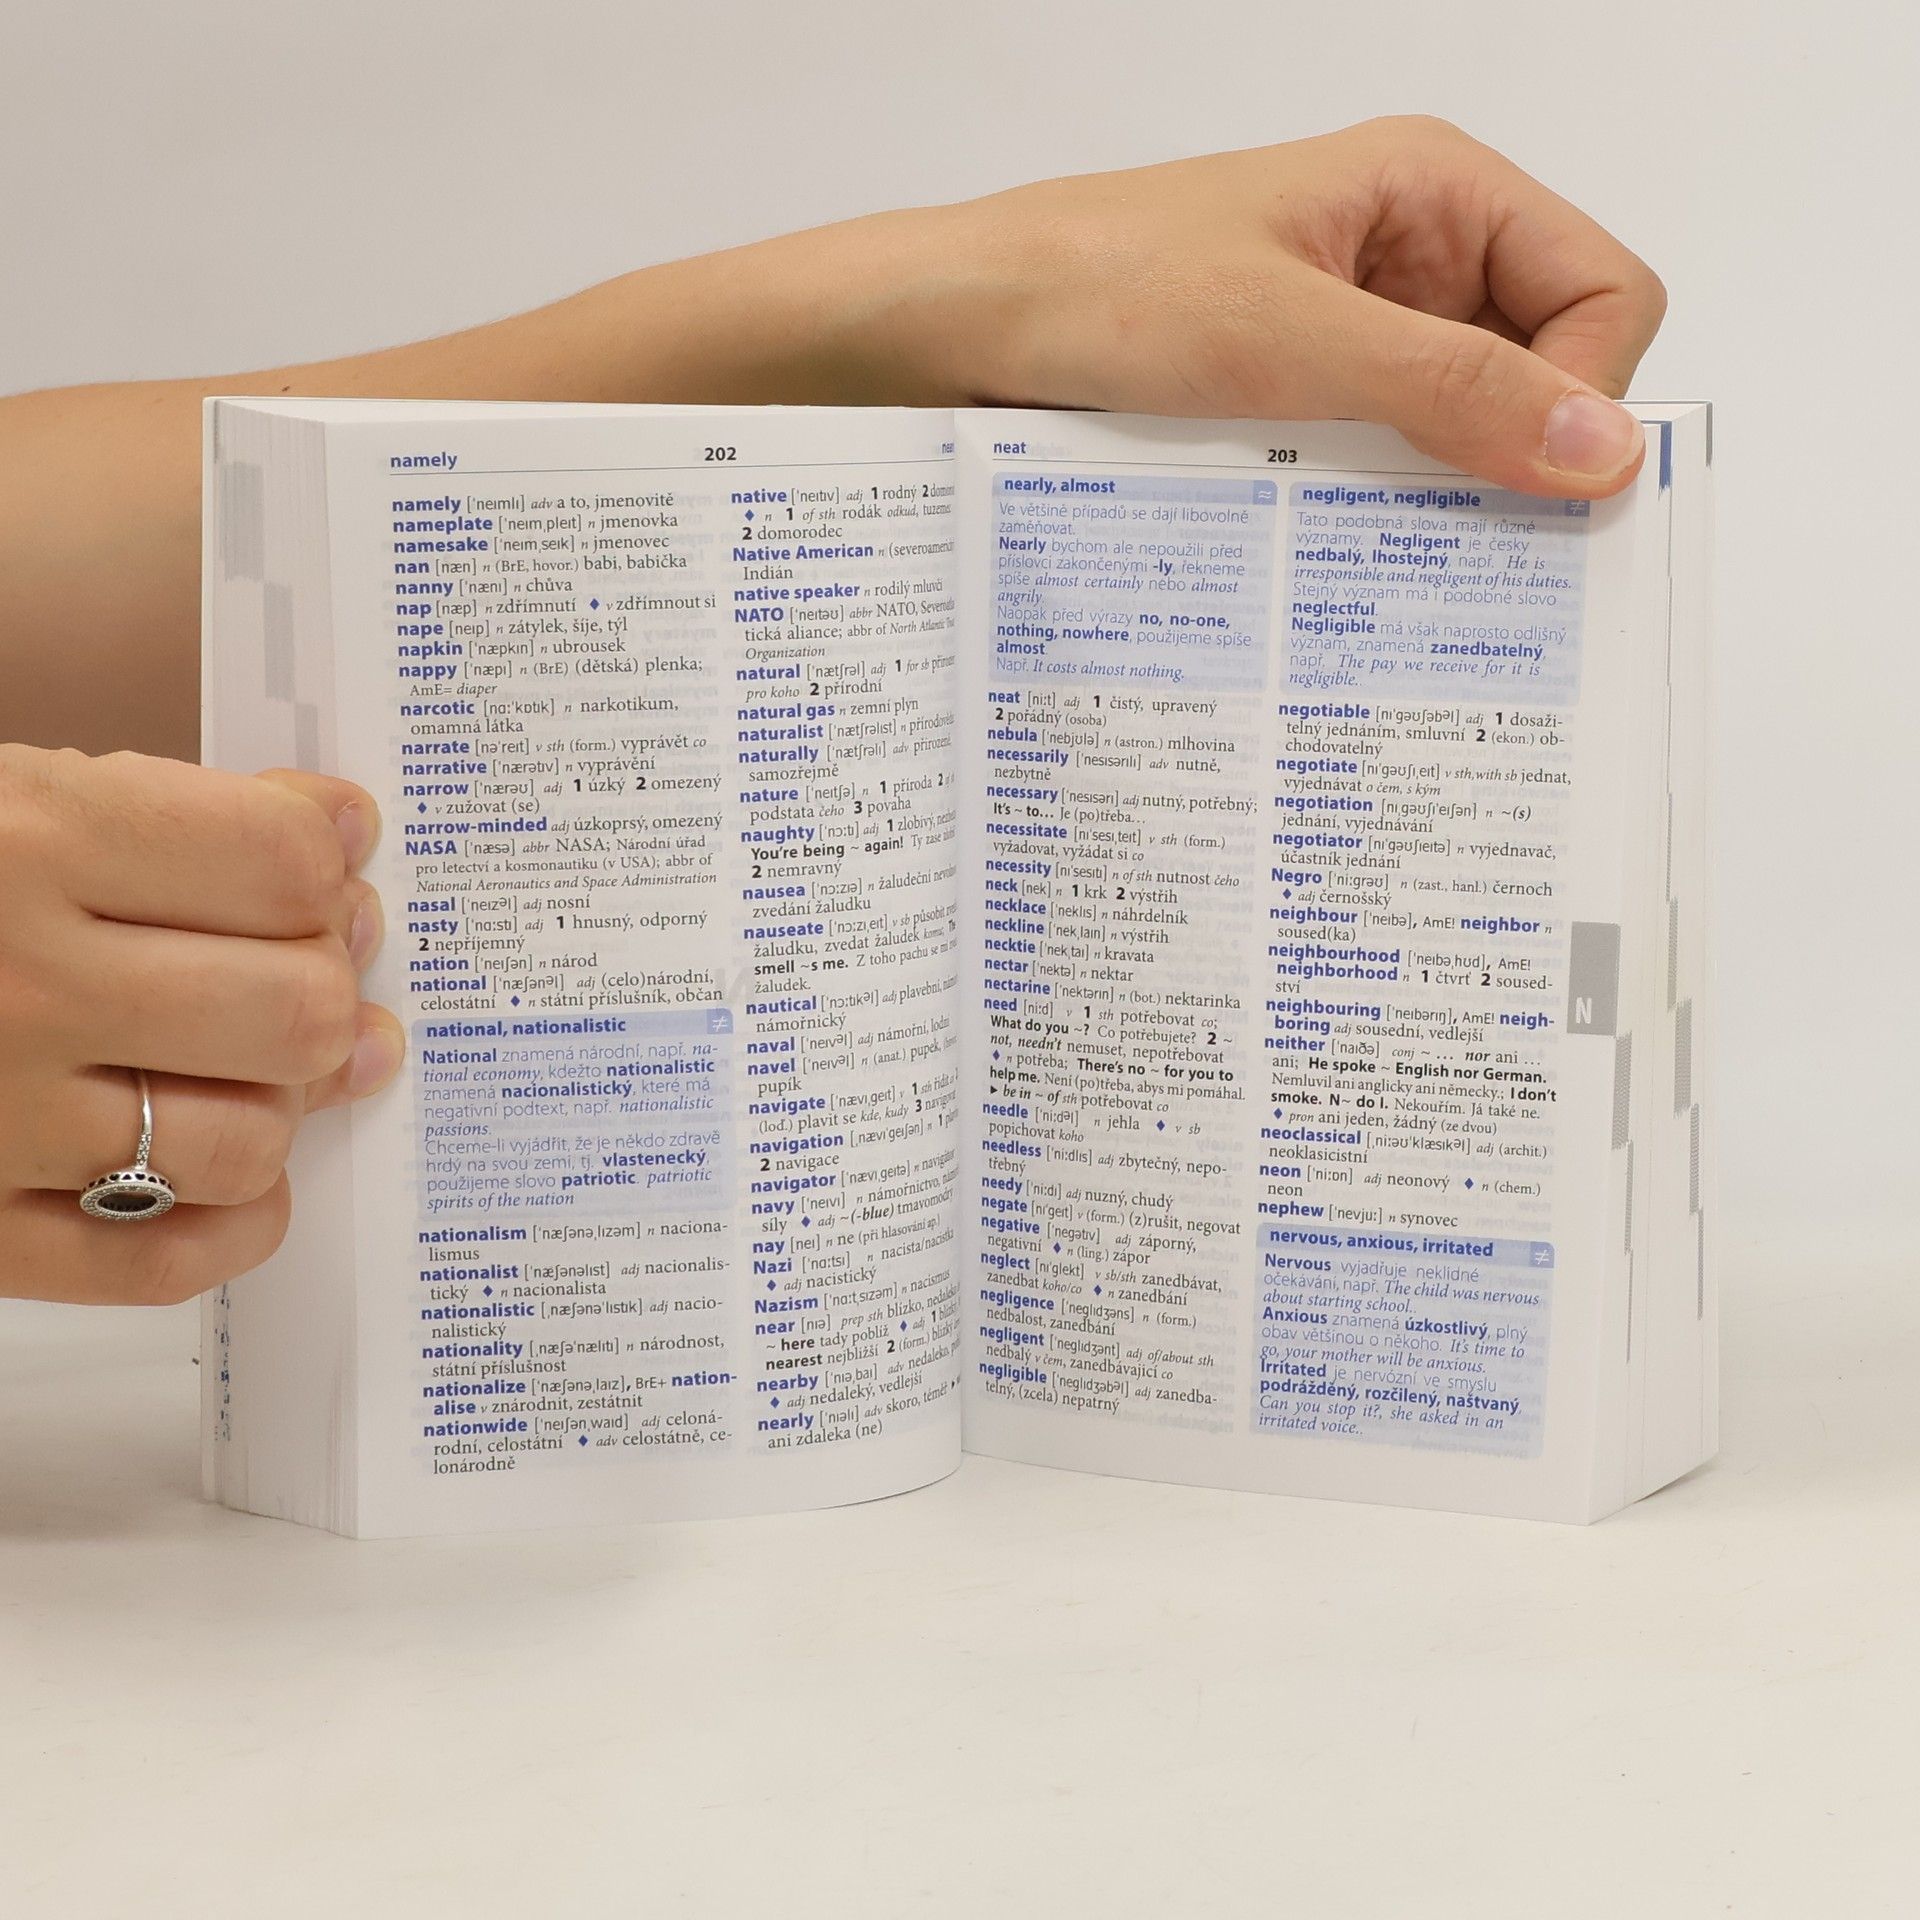 namely
202
namely ['neɪmlɪ] adv a to, jmenovitě
nameplate ['neɪmˌpleɪt] n jmenovka
namesake ['neɪmˌseɪk] n jmenovec
nan [næn] n (BrE, hovor.) babi, babička
nanny ['nænɪ] n chůva
nap [næp] n zdřímnutí ♦ v zdřímnout si
nape [neɪp] n zátylek, šíje, týl
napkin ['næpkɪn] n ubrousek
nappy ['næpɪ] n (BrE) (dětská) plenka;
AmE= diaper
narcotic [nɑː'kɒtɪk] n narkotikum,
omamná látka
narrate [nə'reɪt] v sth (form.) vyprávět co
narrative ['nærətɪv] n vyprávění
narrow ['nærəʊ] adj 1 úzký 2 omezený
♦ v zužovat (se)
narrow-minded adj úzkoprsý, omezený
NASA ['næsə] abbr NASA; Národní úřad
pro letectví a kosmonautiku (v USA); abbr of
National Aeronautics and Space Administration
nasal ['neɪzəl] adj nosní
nasty ['nɑːstɪ] adj 1 hnusný, odporný
2 nepříjemný
nation ['neɪʃən] n národ
national ['næʃənəl] adj (celo)národní,
celostátní ♦ n státní příslušník, občan
national, nationalistic ≠
National znamená národní, např. na-
tional economy, kdežto nationalistic
znamená nacionalistický, které má
negativní podtext, např. nationalistic
passions.
Chceme-li vyjádřit, že je někdo zdravě
hrdý na svou zemi, tj. vlastenecký,
použijeme slovo patriotic. patriotic
spirits of the nation
nationalism ['næʃənəˌlɪzəm] n naciona-
lismus
nationalist ['næʃənəlɪst] adj nacionalis-
tický ♦ n nacionalista
nationalistic [ˌnæʃənə'lɪstɪk] adj nacio-
nalistický
nationality [ˌnæʃə'nælɪtɪ] n národnost,
státní příslušnost
nationalize ['næʃənəˌlaɪz], BrE+ nation-
alise v znárodnit, zestátnit
nationwide ['neɪʃənˌwaɪd] adj celoná-
rodní, celostátní ♦ adv celostátně, ce-
lonárodně
native ['neɪtɪv] adj 1 rodný 2
♦ n 1 of sth rodák odkud,
2 domorodec
Native American n
Indián
native speaker n rodilý mluvčí
NATO ['neɪtəʊ] abbr NATO,
tická aliance; abbr of North Atlantic
Organization
natural ['nætʃrəl] adj 1 for sb
pro koho 2 přírodní
natural gas n zemní plyn
naturalist ['nætʃrəlɪst] n
naturally ['nætʃrəlɪ] adv přirozeně,
samozřejmě
nature ['neɪtʃə] n 1 příroda 2
podstata čeho 3 povaha
naughty ['nɔːtɪ] adj 1 zlobivý,
You're being ~ again! Ty zase
2 nemravný
nausea ['nɔːzɪə] n žaludeční
zvedání žaludku
nauseate ['nɔːzɪˌeɪt] v sb působit
žaludku, zvedat žaludek komu;
smell ~s me. Z toho pachu se mi
žaludek.
nautical ['nɔːtɪkəl] adj plavební,
námořnický
naval ['neɪvəl] adj námořní, lodní
navel ['neɪvəl] n (anat.) pupek,
pupík
navigate ['nævɪˌgeɪt] v 1 sth řídit
(loď.) plavit se kde, kudy 3
navigation [ˌnævɪ'geɪʃən] n 1
2 navigace
navigator ['nævɪˌgeɪtə] n navigátor
navy ['neɪvɪ] n námořnictvo,
síly ♦ adj ~(-blue) tmavomodrý
nay [neɪ] n ne (při hlasování ap.)
Nazi ['nɑːtsɪ] n nacista/nacistka
♦ adj nacistický
Nazism ['nɑːtˌsɪzəm] n nacismus
near [nɪə] prep sth blízko,
~ here tady poblíž ♦ adj 1
nearest nejbližší 2 (form.) blízký
nearby ['nɪəˌbaɪ] adv nedaleko,
♦ adj nedaleký, vedlejší
nearly ['nɪəlɪ] adv skoro, téměř
ani zdaleka (ne)
neat
203
nearly, almost ≈
Ve většině případů se dají libovolně
zaměňovat.
Nearly bychom ale nepoužili před
příslovci zakončenými -ly, řekneme
spíše almost certainly nebo almost
angrily.
Naopak před výrazy no, no-one,
nothing, nowhere, použijeme spíše
almost.
Např. It costs almost nothing.
neat [niːt] adj 1 čistý, upravený
2 pořádný (osoba)
nebula ['nebjʊlə] n (astron.) mlhovina
necessarily ['nesɪsərɪlɪ] adv nutně,
nezbytně
necessary ['nesɪsərɪ] adj nutný, potřebný;
It's ~ to… Je (po)třeba…
necessitate [nɪ'sesɪˌteɪt] v sth (form.)
vyžadovat, vyžádat si co
necessity [nɪ'sesɪtɪ] n of sth nutnost čeho
neck [nek] n 1 krk 2 výstřih
necklace ['neklɪs] n náhrdelník
neckline ['nekˌlaɪn] n výstřih
necktie ['nekˌtaɪ] n kravata
nectar ['nektə] n nektar
nectarine ['nektərɪn] n (bot.) nektarinka
need [niːd] v 1 sth potřebovat co;
What do you ~? Co potřebujete? 2 ~
not, needn't nemuset, nepotřebovat
♦ n potřeba; There's no ~ for you to
help me. Není (po)třeba, abys mi pomáhal.
▸ be in ~ of sth potřebovat co
needle ['niːdəl] n jehla ♦ v sb
popichovat koho
needless ['niːdlɪs] adj zbytečný, nepo-
třebný
needy ['niːdɪ] adj nuzný, chudý
negate [nɪ'geɪt] v (form.) (z)rušit, negovat
negative ['negətɪv] adj záporný,
negativní ♦ n (ling.) zápor
neglect [nɪ'glekt] v sb/sth zanedbávat,
zanedbat koho/co ♦ n zanedbání
negligence ['neglɪdʒəns] n (form.)
nedbalost, zanedbání
negligent ['neglɪdʒənt] adj of/about sth
nedbalý v čem, zanedbávající co
negligible ['neglɪdʒəbəl] adj zanedba-
telný, (zcela) nepatrný
negligent, negligible ≠
Tato podobná slova mají různé
významy. Negligent je česky
nedbalý, lhostejný, např. He is
irresponsible and negligent of his duties.
Stejný význam má i podobné slovo
neglectful.
Negligible má však naprosto odlišný
význam, znamená zanedbatelný,
např. The pay we receive for it is
negligible..
negotiable [nɪ'gəʊʃəbəl] adj 1 dosaži-
telný jednáním, smluvní 2 (ekon.) ob-
chodovatelný
negotiate [nɪ'gəʊʃɪˌeɪt] v sth,with sb jednat,
vyjednávat o čem, s kým
negotiation [nɪˌgəʊʃɪ'eɪʃən] n ~(s)
jednání, vyjednávání
negotiator [nɪ'gəʊʃɪeɪtə] n vyjednavač,
účastník jednání
Negro ['niːgrəʊ] n (zast., hanl.) černoch
♦ adj černošský
neighbour ['neɪbə], AmE! neighbor n
soused(ka)
neighbourhood ['neɪbəˌhʊd], AmE!
neighborhood n 1 čtvrť 2 soused-
ství
neighbouring ['neɪbərɪŋ], AmE! neigh-
boring adj sousední, vedlejší
neither ['naɪðə] conj ~ … nor ani …
ani; He spoke ~ English nor German.
Nemluvil ani anglicky ani německy.; I don't
smoke. N~ do I. Nekouřím. Já také ne.
♦ pron ani jeden, žádný (ze dvou)
neoclassical [ˌniːəʊ'klæsɪkəl] adj (archit.)
neoklasicistní
neon ['niːɒn] adj neonový ♦ n (chem.)
neon
nephew ['nevjuː] n synovec
nervous, anxious, irritated ≠
Nervous vyjadřuje neklidné
očekávání, např. The child was nervous
about starting school..
Anxious znamená úzkostlivý, plný
obav většinou o někoho. It's time to
go, your mother will be anxious.
Irritated je nervózní ve smyslu
podrážděný, rozčilený, naštvaný.
Can you stop it?, she asked in an
irritated voice..
N